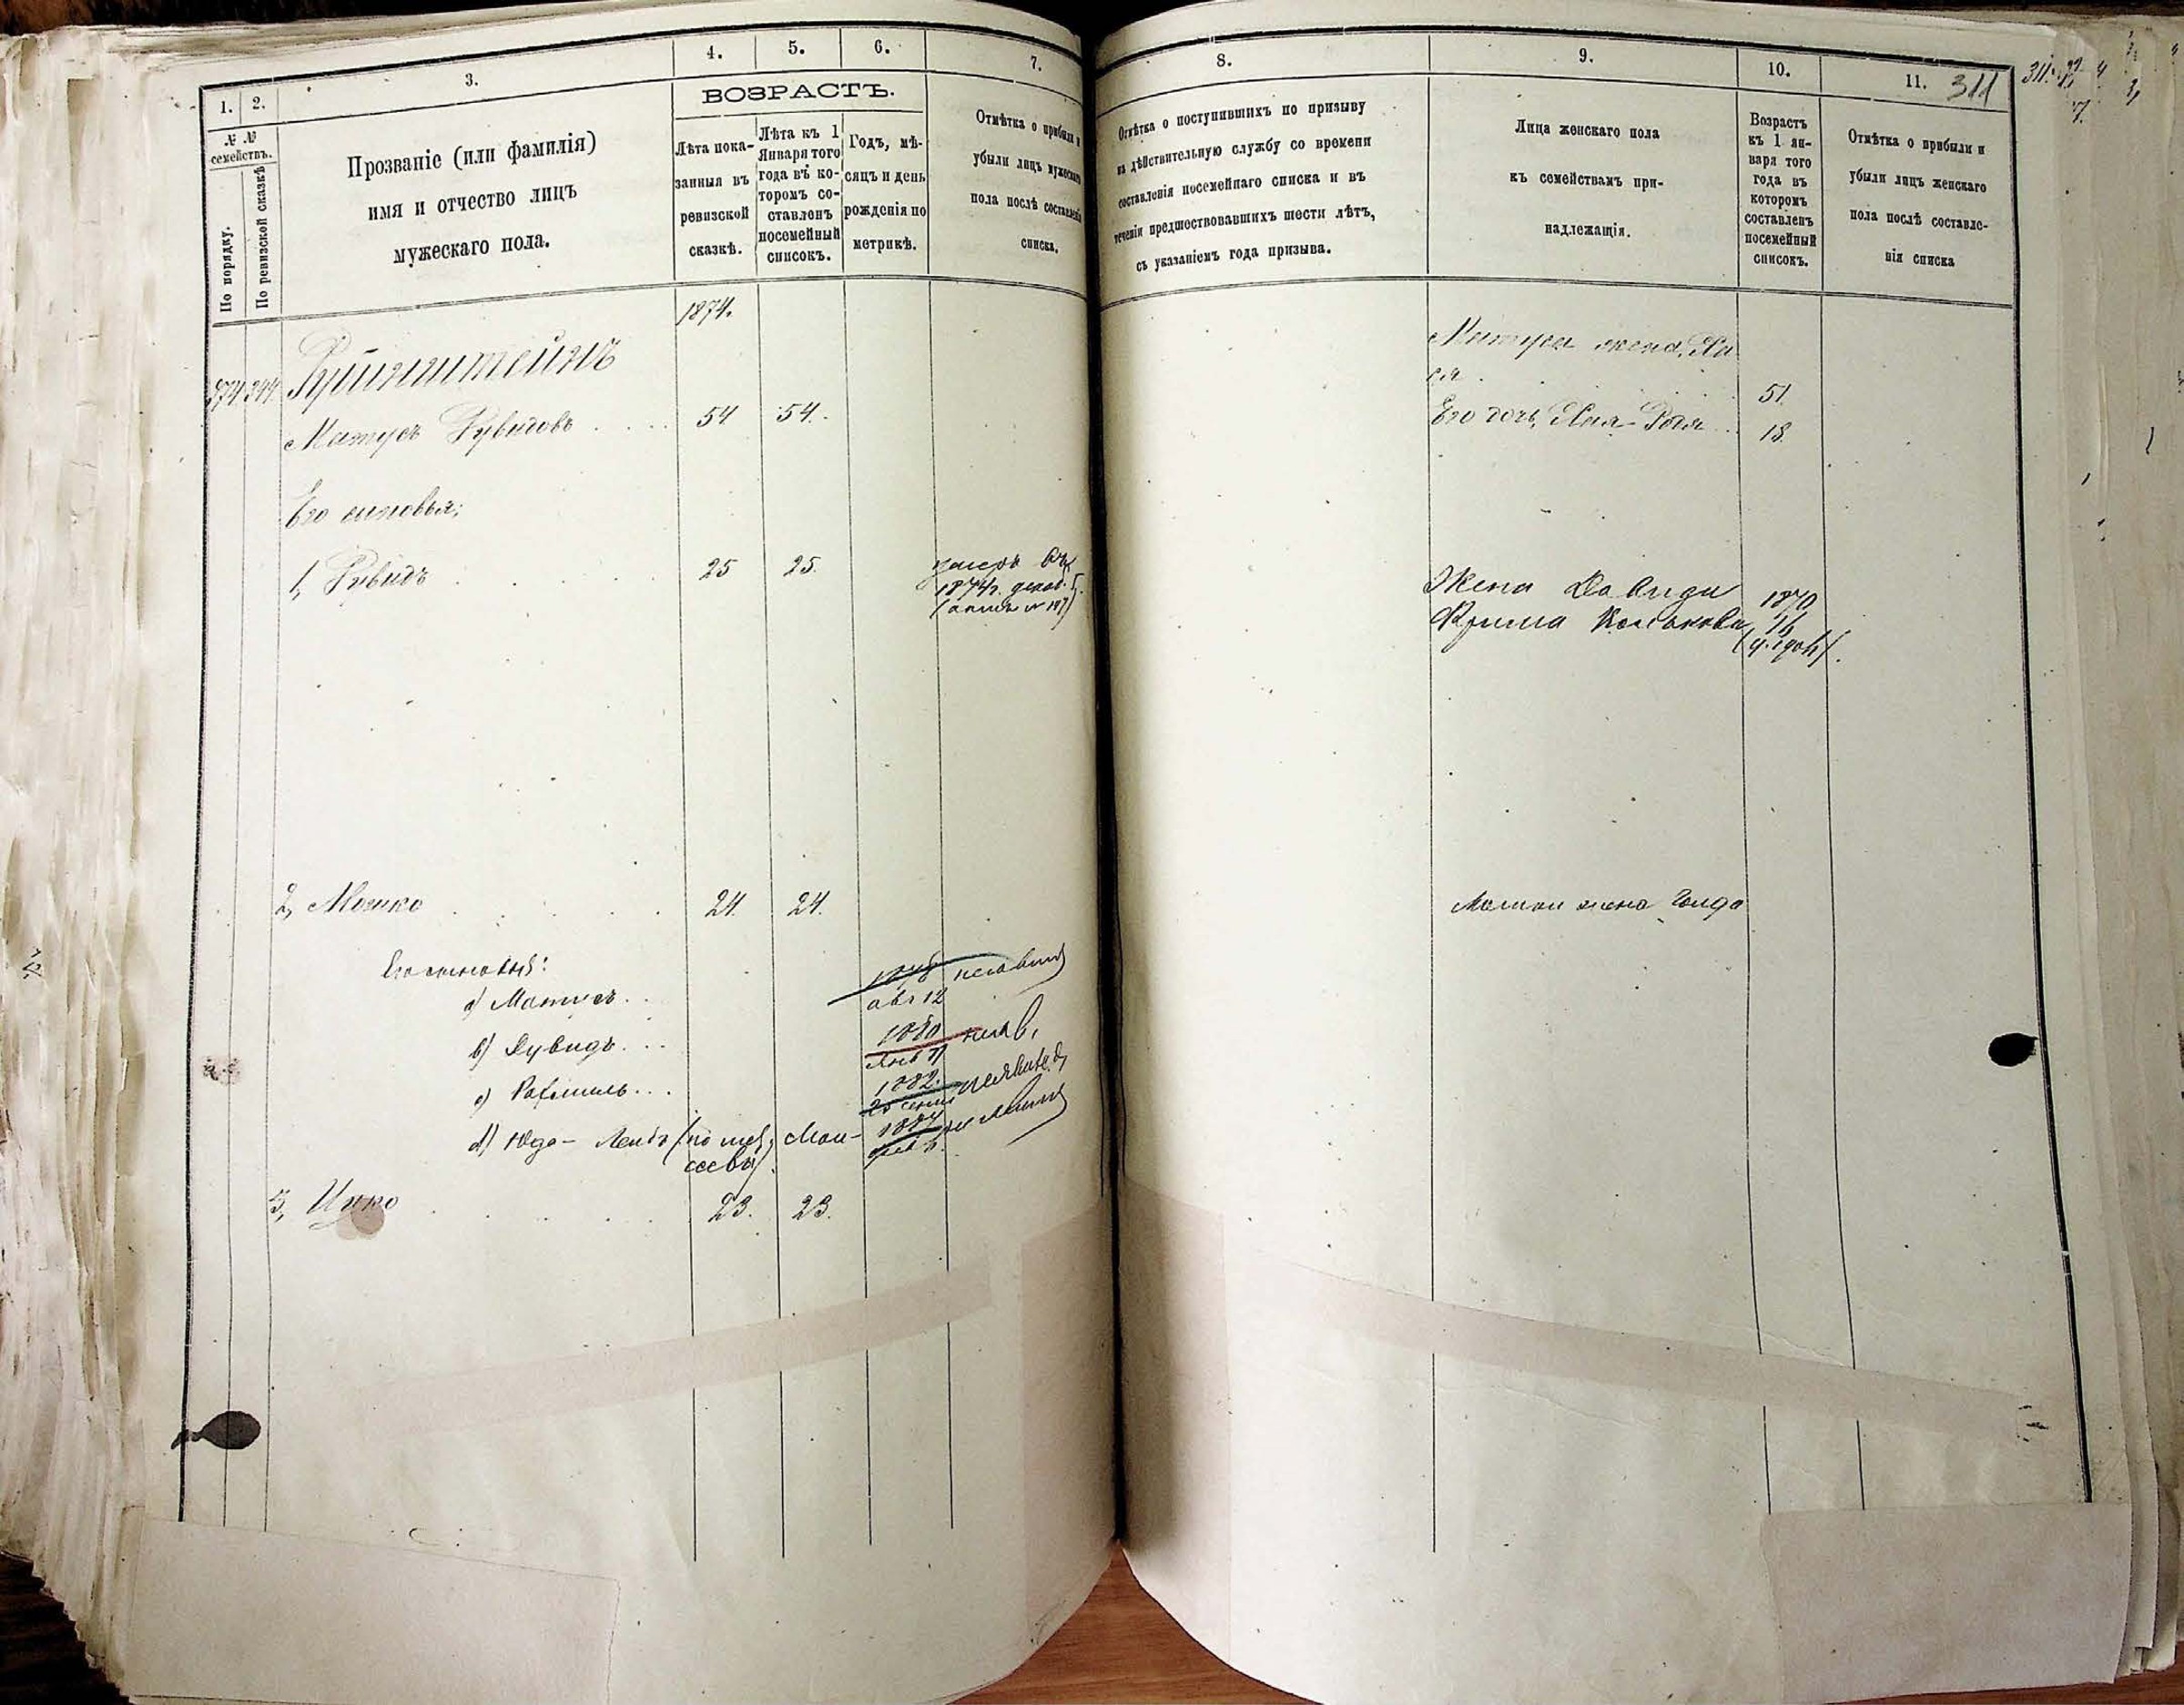 1.
2.
3.
4.
5.
6.
7.
№ №
семействъ.
По порядку.
По ревизской сказкѣ
Прозваніе (или фамилія)
имя и отчество лицъ
мужескаго пола.
ВОЗРАСТЪ.
Лѣта пока-
занныя въ
ревизской
сказкѣ.
Лѣта къ 1
Января того
года въ ко-
торомъ со-
ставленъ
посемейный
списокъ.
Годъ, мѣ-
сяцъ и день
рожденія по
метрикѣ.
Отмѣтка о прибыли и
убыли лицъ мужескаго
пола послѣ составленія
списка.
1874.
344
Матусъ Рувидовъ 54 54.
Его сыновья:
1, Рувидъ 25 25.
2, Мошко 24. 24.
Его сыновья:
а) Матусъ
авг 12
в) Дувидъ
1880
с) Рахмиль
1882.
d) Юда - Лейбъ
1884
3, Ицко 23. 23.
8.
9.
10.
11.
311
Отмѣтка о поступившихъ по призыву
на дѣйствительную службу со времени
составленія посемейнаго списка и въ
теченіи предшествовавшихъ шести лѣтъ,
съ указаніемъ года призыва.
Лица женскаго пола
къ семействамъ при-
надлежащія.
Возрастъ
къ 1 ян-
варя того
года въ
которомъ
составленъ
посемейный
списокъ.
Отмѣтка о прибыли и
убыли лицъ женскаго
пола послѣ составле-
нія списка
Матуса жена, Ха
ся 51.
Его дочь, Хая- 18.
Жена Давида 1870
Мошки жена Голда